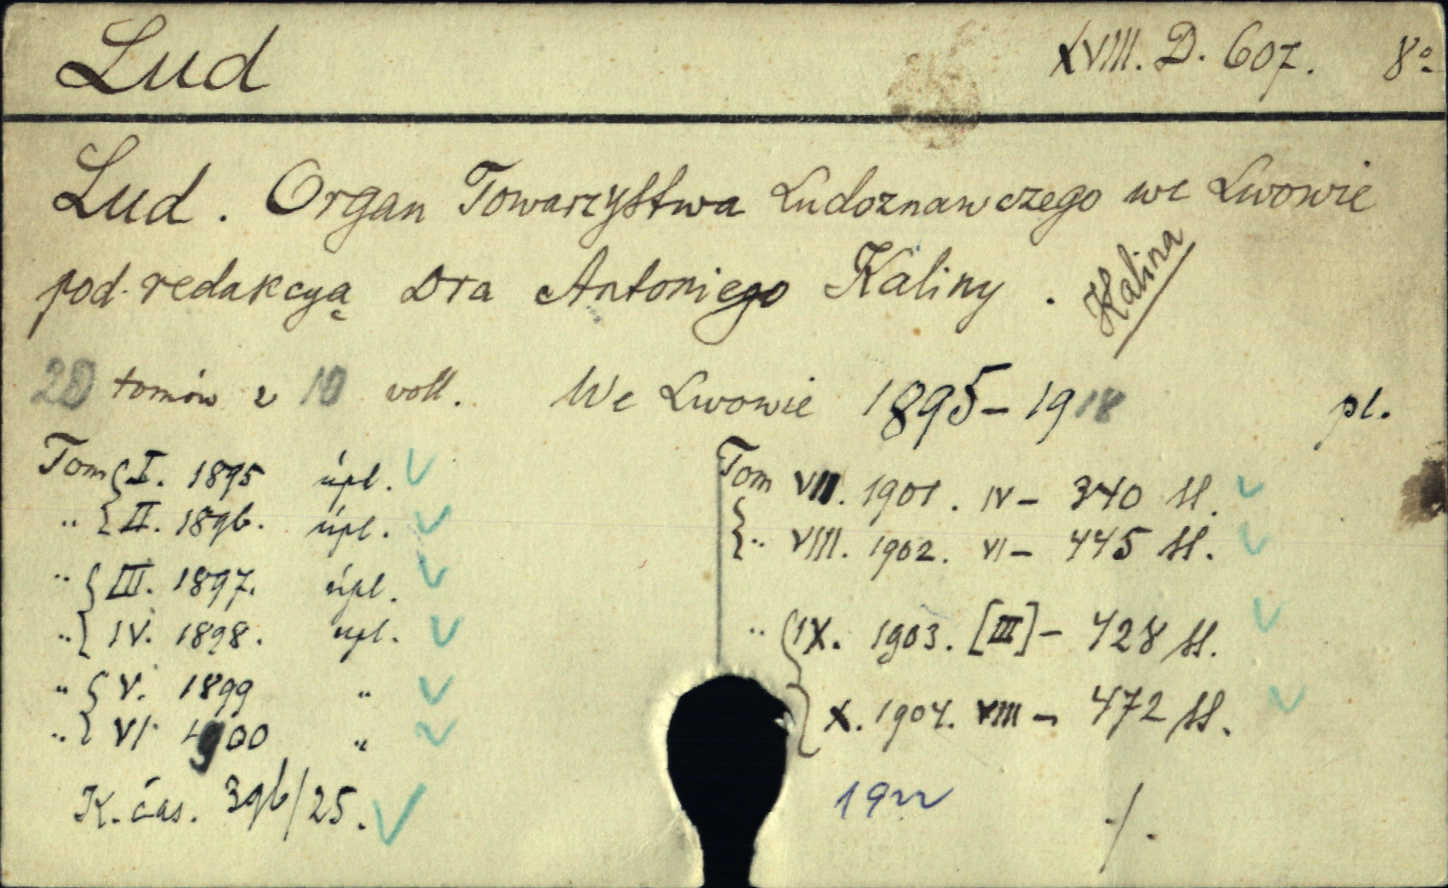 Lud XVIII. D. 607. 8°
Lud. Organ Towarzystwa Ludoznawczego we Lwowie
pod redakcyą Dra Antoniego Kaliny. Kalina
20 tomów v 10 voll. We Lwowie 1895-1918 pl.
Tom I. 1895 úpl.
„ II. 1896. úpl.
„ III. 1897. úpl.
„ IV. 1898. úpl.
„ V. 1899 „
„ VI 1900 „
K. čas. 396/25.
Tom VII. 1901. IV - 340 ss.
„ VIII. 1902. VI - 445 ss.
„ IX. 1903. [III] - 428 ss.
X. 1904. VIII - 472 ss.
1922 ·/.